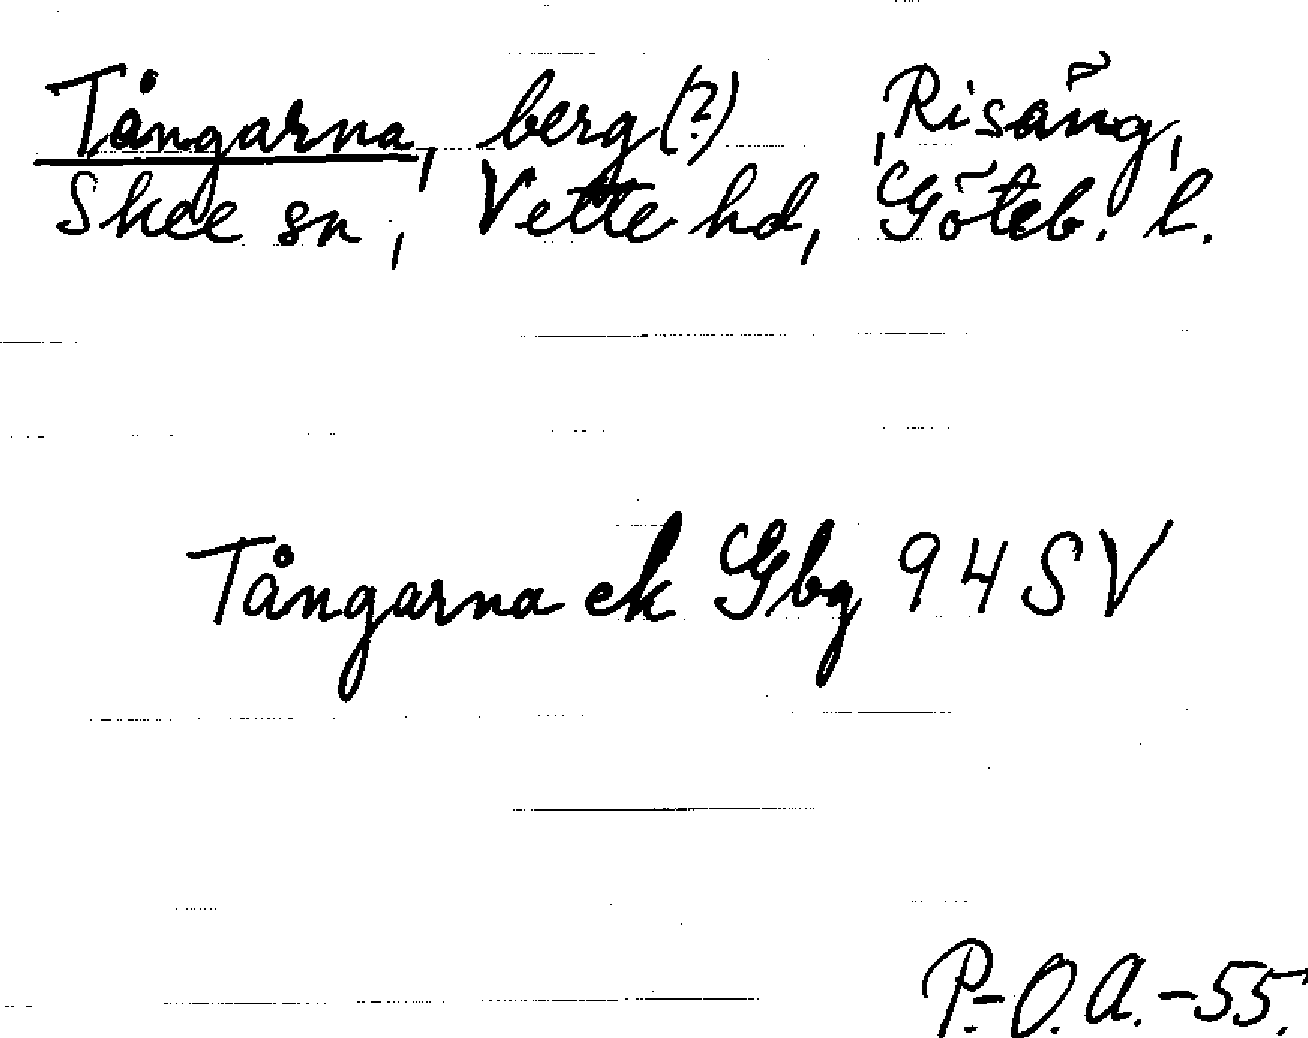 Tångarna, berg(?) , Risäng,
Skee sn, Vette hd, Göteb. l.
Tångarna ek Gbg 94 SV
P.-O. A. -55.